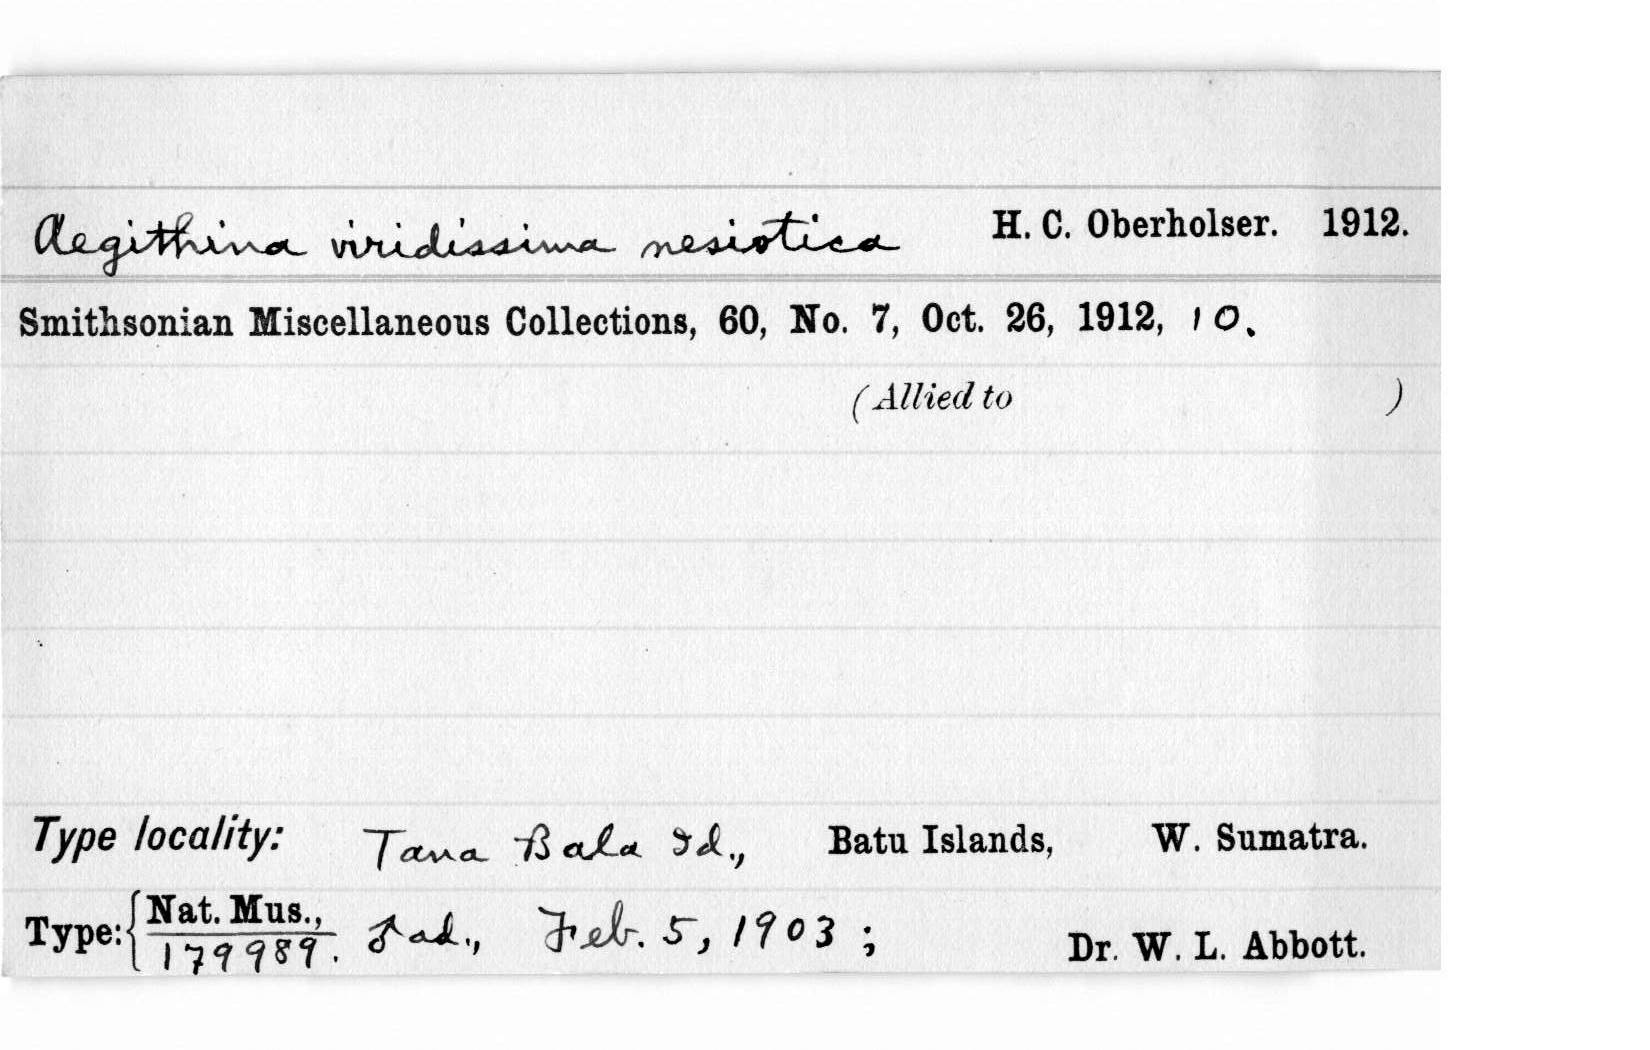 Aegithina viridissima nesiotica H. C. Oberholser. 1912.
Smithsonian Miscellaneous Collections, 60, No. 7, Oct. 26, 1912, 10.
(Allied to )
Type locality: Tana Bala Id., Batu Islands, W. Sumatra.
Type: { Nat. Mus.,
179989. ♂ ad., Feb. 5, 1903 ; Dr. W. L. Abbott.